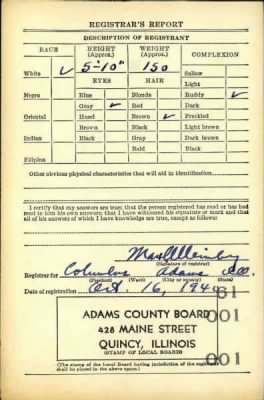 REGISTRAR'S REPORT
DESCRIPTION OF REGISTRANT
RACE HEIGHT (Approx.) WEIGHT (Approx.) COMPLEXION
White ✓ 5-10" 150 Sallow
EYES HAIR Light
Negro Blue Blonde Ruddy ✓
Gray ✓ Red Dark
Oriental Hazel Brown ✓ Freckled
Brown Black Light brown
Indian Black Gray Dark brown
Bald Black
Filipino
Other obvious physical characteristics that will aid in identification
I certify that my answers are true; that the person registered has read or has had
read to him his own answers; that I have witnessed his signature or mark and that
all of his answers of which I have knowledge are true, except as follows:
(Signature of registrar)
Registrar for Columbus Adams Ill.
(Precinct) (Ward) (City or county) (State)
Date of registration Oct. 16, 1940
61
001
001
ADAMS COUNTY BOARD
428 MAINE STREET
QUINCY, ILLINOIS
(STAMP OF LOCAL BOARD)
(The stamp of the Local Board having jurisdiction of the registrant
shall be placed in the above space.)